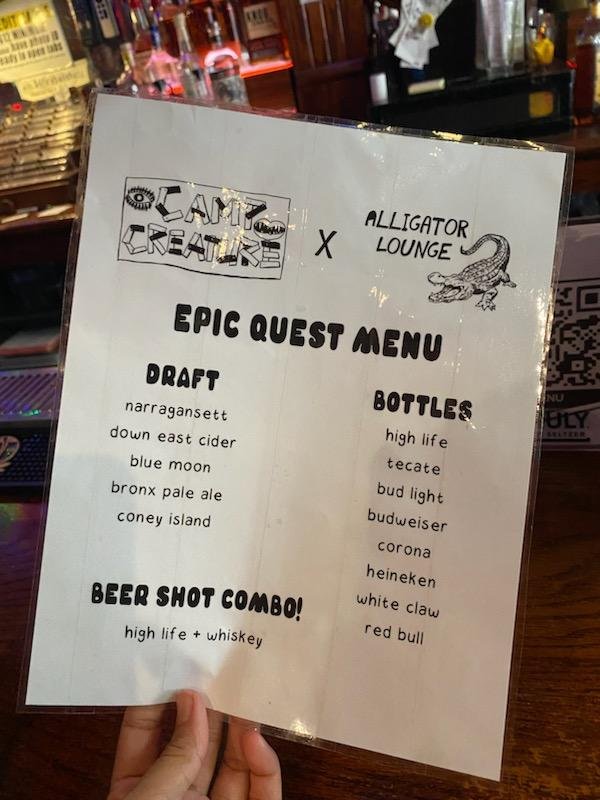 CAMP
CREATURE
X
ALLIGATOR
LOUNGE
EPIC QUEST MENU
DRAFT
narragansett
down east cider
blue moon
bronx pale ale
coney island
BEER SHOT COMBO!
high life + whiskey
BOTTLES
high life
tecate
bud light
budweiser
corona
heineken
white claw
red bull
ULY
SELTZER